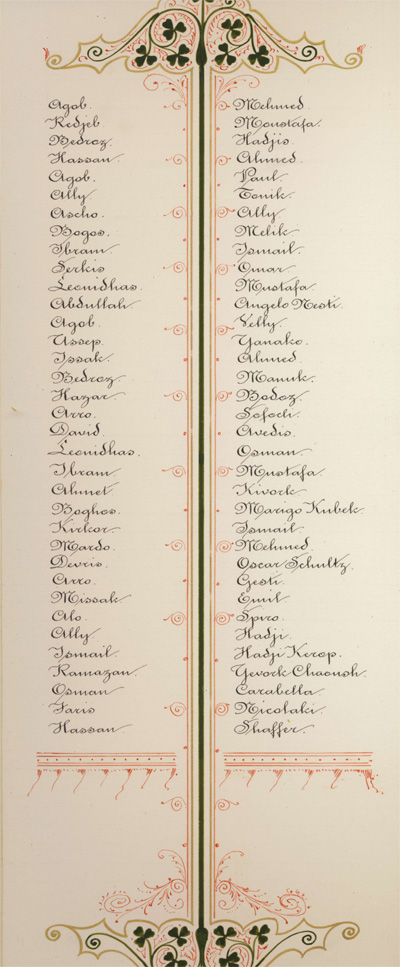 Agob.
Redjeb
Bedroz.
Hassan
Agob.
Ally
Ascho.
Bogos.
Ibram
Serkis
Leonidhas.
Abdullah
Agob.
Ussep.
Issak.
Bedroz
Hazar
Arro.
David.
Leonidhas.
Ibram
Ahmet
Boghos.
Kirkor.
Mardo.
Devris.
Arro.
Missak.
Alo.
Ally
Ismail.
Ramazan.
Osman
Faris
Hassan
Mehmed.
Moustafa.
Hadjis.
Ahmed.
Paul.
Tonik.
Ally
Melik
Ismail.
Omar
Mustafa.
Angelo Nesti.
Yanako.
Ahmed
Manuk.
Bodoz
Sofocli.
Avedis.
Osman
Mustafa
Kivork
Marigo Kubek.
Ismail
Mehmed.
Oscar Schultz.
Gesti.
Emil
Spiro.
Hadji.
Hadji Kerop.
Yevork Chaoush.
Carabetta
Nicolaki.
Shaffer.